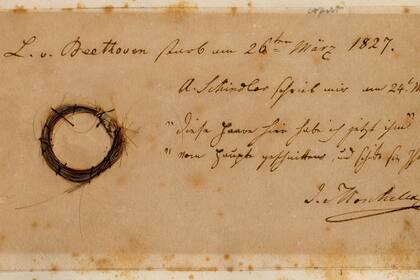 L. v. Beethoven starb am 26ten März 1827.
A. Schindler schrieb mir am 24. M
"diese Haare hier habe ich jetzt ihm
" vom Haupte geschnitten, und schicke sie Ih
I. Moscheles